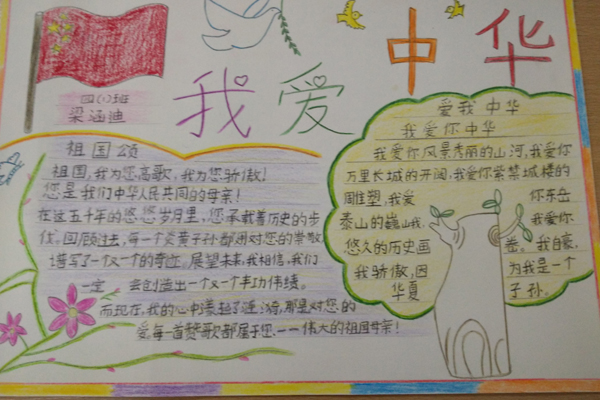 我爱中华
四(1)班
梁涵迪
祖国颂
祖国,我为您高歌,我为您骄傲!
您是我们中华人民共同的母亲!
在这五千年的悠悠岁月里,您承载着历史的步
伐。回顾过去,每一个炎黄子孙都用对您的常敬
谱写了一个又一个的奇迹。展望未来,我相信,我们
一定会创造出一个又一个丰功伟绩。
而现在,我的心中漾起了涟漪,那是对您的
爱,每一首赞歌都属于您——伟大的祖国母亲!
爱我中华
我爱你中华
我爱你风景秀丽的山河,我爱你
万里长城的开阔,我爱你紫禁城楼的
周惟塑,我爱你东岳
泰山的巍山戏,我爱你
悠久的历史画卷。我自豪,
我骄傲,因为我是一个
华夏子孙。